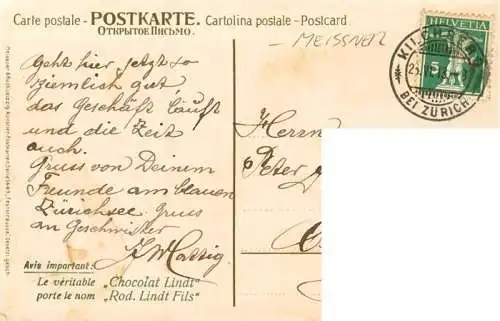 Carte postale - POSTKARTE. - Cartolina postale - Postcard
ОТКРЫТОЕ ПИСЬМО.
- MEISSNER
HELVETIA
5
KILCHBERG
BEI ZÜRICH
Geht hier jetzt so
ziemlich gut,
das Geschäft läuft
und die Zeit
auch.
Gruss von Deinem
Freunde am blauen
Zürichsee. Gruss
an Geschwister
Herrn
Peter
Avis important:
Le véritable „Chocolat Lindt“
porte le nom „Rod. Lindt Fils“